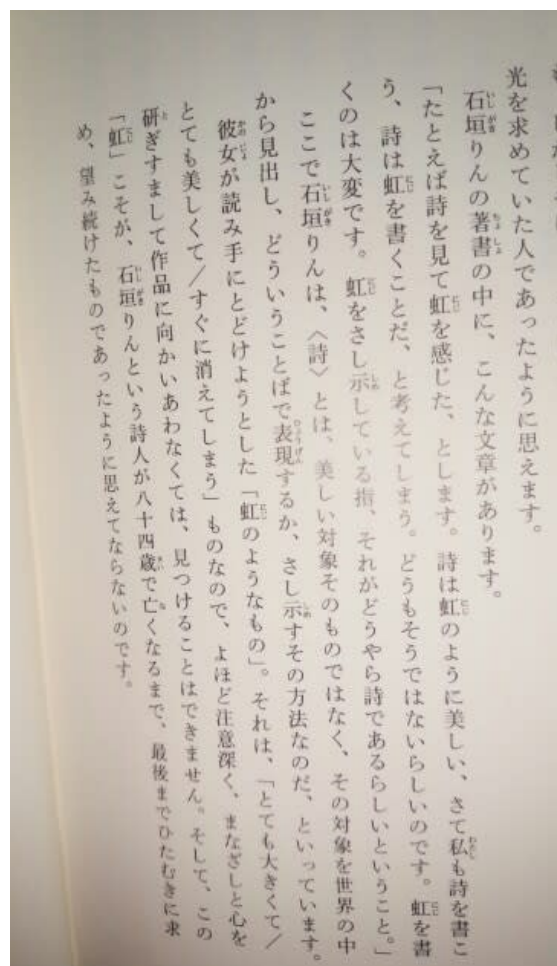 光を求めていた人であったように思えます。
石垣りんの著書の中に、こんな文章があります。
「たとえば詩を見て虹を感じた、とします。詩は虹のように美しい、さて私も詩を書こ
う、詩は虹を書くことだ、と考えてしまう。どうもそうではないらしいのです。虹を書
くのは大変です。虹をさし示している指、それがどうやら詩であるらしいということ。」
ここで石垣りんは、〈詩〉とは、美しい対象そのものではなく、その対象を世界の中
から見出し、どういうことばで表現するか、さし示すその方法なのだ、といっています。
彼女が読み手にとどけようとした「虹のようなもの」。それは、「とても大きくて／
とても美しくて／すぐに消えてしまう」ものなので、よほど注意深く、まなざしと心を
研ぎすまして作品に向かいあわなくては、見つけることはできません。そして、この
「虹」こそが、石垣りんという詩人が八十四歳で亡くなるまで、最後までひたむきに求
め、望み続けたものであったように思えてならないのです。